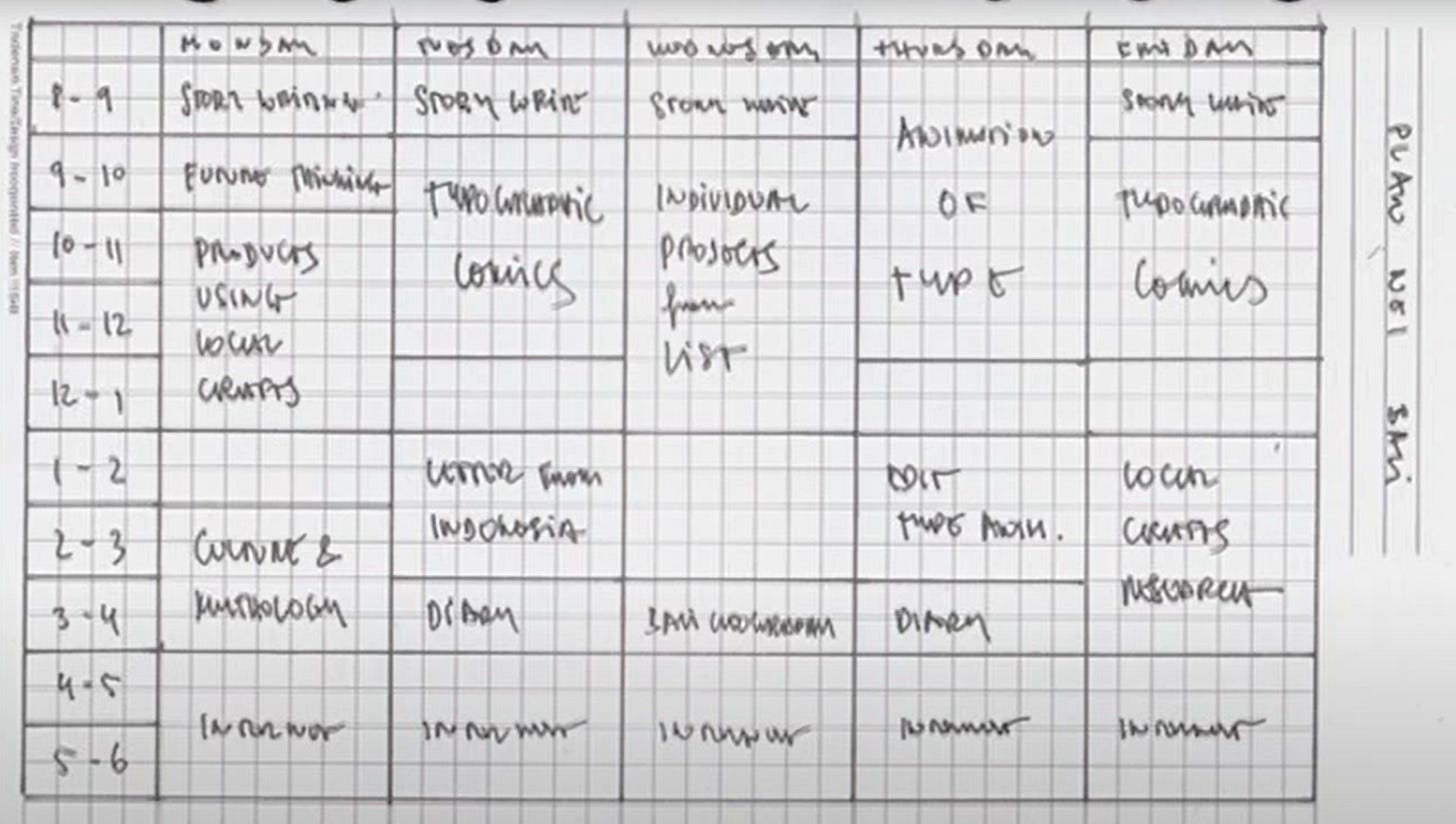 MONDAY TUESDAY WEDNESDAY THURSDAY FRIDAY
8-9 STORY WRITING STORY WRITE STORY WRITE STORY WRITE
ANIMATION
9-10 FUTURE THINKING TYPOGRAPHIC INDIVIDUAL OF TYPOGRAPHIC
10-11 PRODUCTS COMICS PROJECTS TYPE COMICS
USING from
11-12 LOCAL LIST
12-1 CRAFTS
1-2 LETTER FROM EDIT LOCAL
2-3 CULTURE & INDONESIA TYPE ANIM. CRAFTS
RESEARCH
3-4 MYTHOLOGY DIARY BALI DIARY
4-5
INTERNET INTERNET INTERNET INTERNET INTERNET
5-6
PLAN NO1 BALI